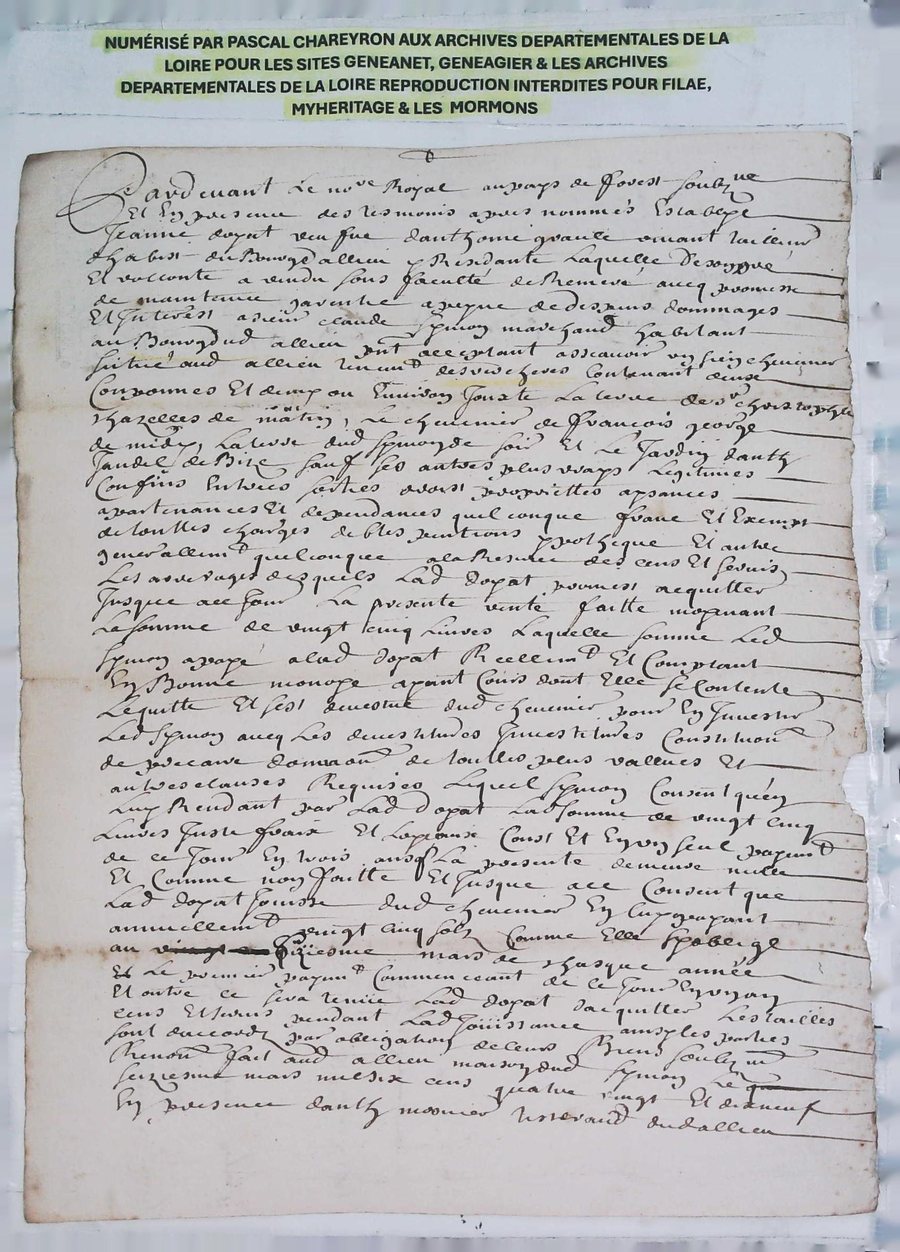 NUMÉRISÉ PAR PASCAL CHAREYRON AUX ARCHIVES DEPARTEMENTALES DE LA
LOIRE POUR LES SITES GENEANET, GENEAGIER & LES ARCHIVES
DEPARTEMENTALES DE LA LOIRE REPRODUCTION INTERDITES POUR FILAE,
MYHERITAGE & LES MORMONS
Pardevant le no.re Royal au pays de fforest soubz.ne
Et En presence des tesmoins apres nommés Establye
Jeanne dopat veufue danthoine vivant tailleur
dhabist du Bourg dallieu y Residante Laquelle De son gré
Et a vendu soubs faculté de Remeré aucq promesse
de maintenir garentir a peyne de despans dommages
Et Interest a sieur claude Symon marchand habitant
au Bourg dud allieu p.nt acceptant asscavoir un sien cheneuier
situé aud allieu des vercheres Contenant deux
Couponnes Et demy ou Environ Jouxte La terre de s.r christophle
chazelles de matin, Le cheneuier de francois george
de midy, La terre dud Symon de soir Et Le Jardin danth
Jandel de Bize sauf ses autres plus vrays Legitimes
Confins Entrées sorties droist proprietes aysances
apartenances Et dependances quelconque franc Et Exempt
de touttes charges debtes pentions ypotheque Et autre
generallem.t quelconque a la Reserve des cens Et servis
Les arrerages desquels Lad dopat promest acquitter
Jusque a ce Jour La presente vente faitte moyenant
La somme de vingt cinq Liures Laquelle somme Led
Symon a payé a lad dopat Reellem.t Et Comptant
En Bonne monoye ayant Cours dont Elle se Contente
Lequitte Et sest devestue dud cheneuier pour En Investir
Led Symon aucq Les devestitures Investitures Constitution
de precaire donnaon de touttes plus vallues Et
autres clauses Requises Lequel Symon Consent quen
Luy Rendant par Lad dopat Lad somme de vingt cinq
Liures Juste fraix Et Loyeaux Const Et En un seul payem.t
de ce Jour En trois ans La presente demeure nulle
Et Comme non faitte Et Jusque a ce Consent que
Lad dopat Jouisse dud cheneuier En luy payant
annuellem.t vingt cinq solz Comme Elle soblige
au seiziesme mars de chasque année
Et Le premier payem.t Commenceant de ce Jour En un an
Et outre ce sera tenue Lad dopat dacquitter Les tailles
cens Et servis pendant Lad Jouissance ainsy les parties
sont daccord par obligation de leurs Biens soubm.
Renon. fait aud allieu maison dud Symon Le
seiziesme mars mil six cens quatre vingt Et dixneuf
En presence danth mosnier tisserand dud allieu